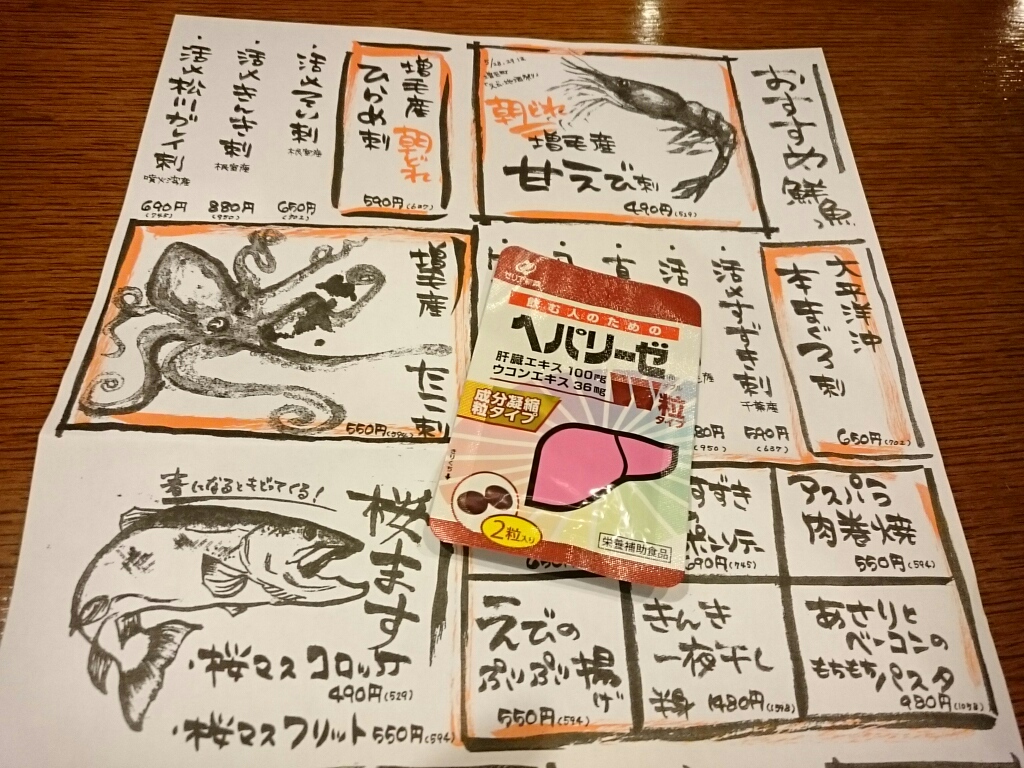 おすすめ鮮魚
朝どれ
増毛産
甘えび刺
490円(529)
増毛産
朝どれ
ひらめ刺
590円(637)
・活〆つぶ刺
根室産
650円(702)
・活〆きんき刺
根室産
880円(950)
・活〆松川ガレイ刺
噴火湾産
690円(745)
太平洋沖
本まぐろ刺
650円(702)
・活〆すずき刺
千葉産
590円(637)
・活
80円
(950)
増毛産
たこ刺
550円(594)
ゼリア新薬
飲む人のための
ヘパリーゼ
肝臓エキス 100mg
ウコンエキス 36mg
W粒
タイプ
成分凝縮
粒タイプ
2粒入り
栄養補助食品
春になるともどってくる!
桜ます
・桜マスコロッケ
490円(529)
・桜マスフリット 550円(594)
アスパラ
肉巻焼
550円(594)
すずき
ポン酢
690円(745)
えびの
ぷりぷり揚げ
550円(594)
きんき
一夜干し
半身 1480円(1598)
あさりと
ベーコンの
もちもちパスタ
980円(1058)